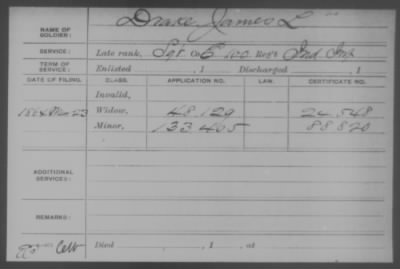 NAME OF SOLDIER: Drake, James L
SERVICE: Late rank, Sgt Co E 100 Reg't Ind Inf
TERM OF SERVICE: Enlisted , 1 Discharged , 1
DATE OF FILING. CLASS. APPLICATION NO. LAW. CERTIFICATE NO.
Invalid,
1864 23 Widow, 48.129 24.548
Minor, 133.405 88.820
ADDITIONAL SERVICES:
REMARKS:
Died , 1 , at